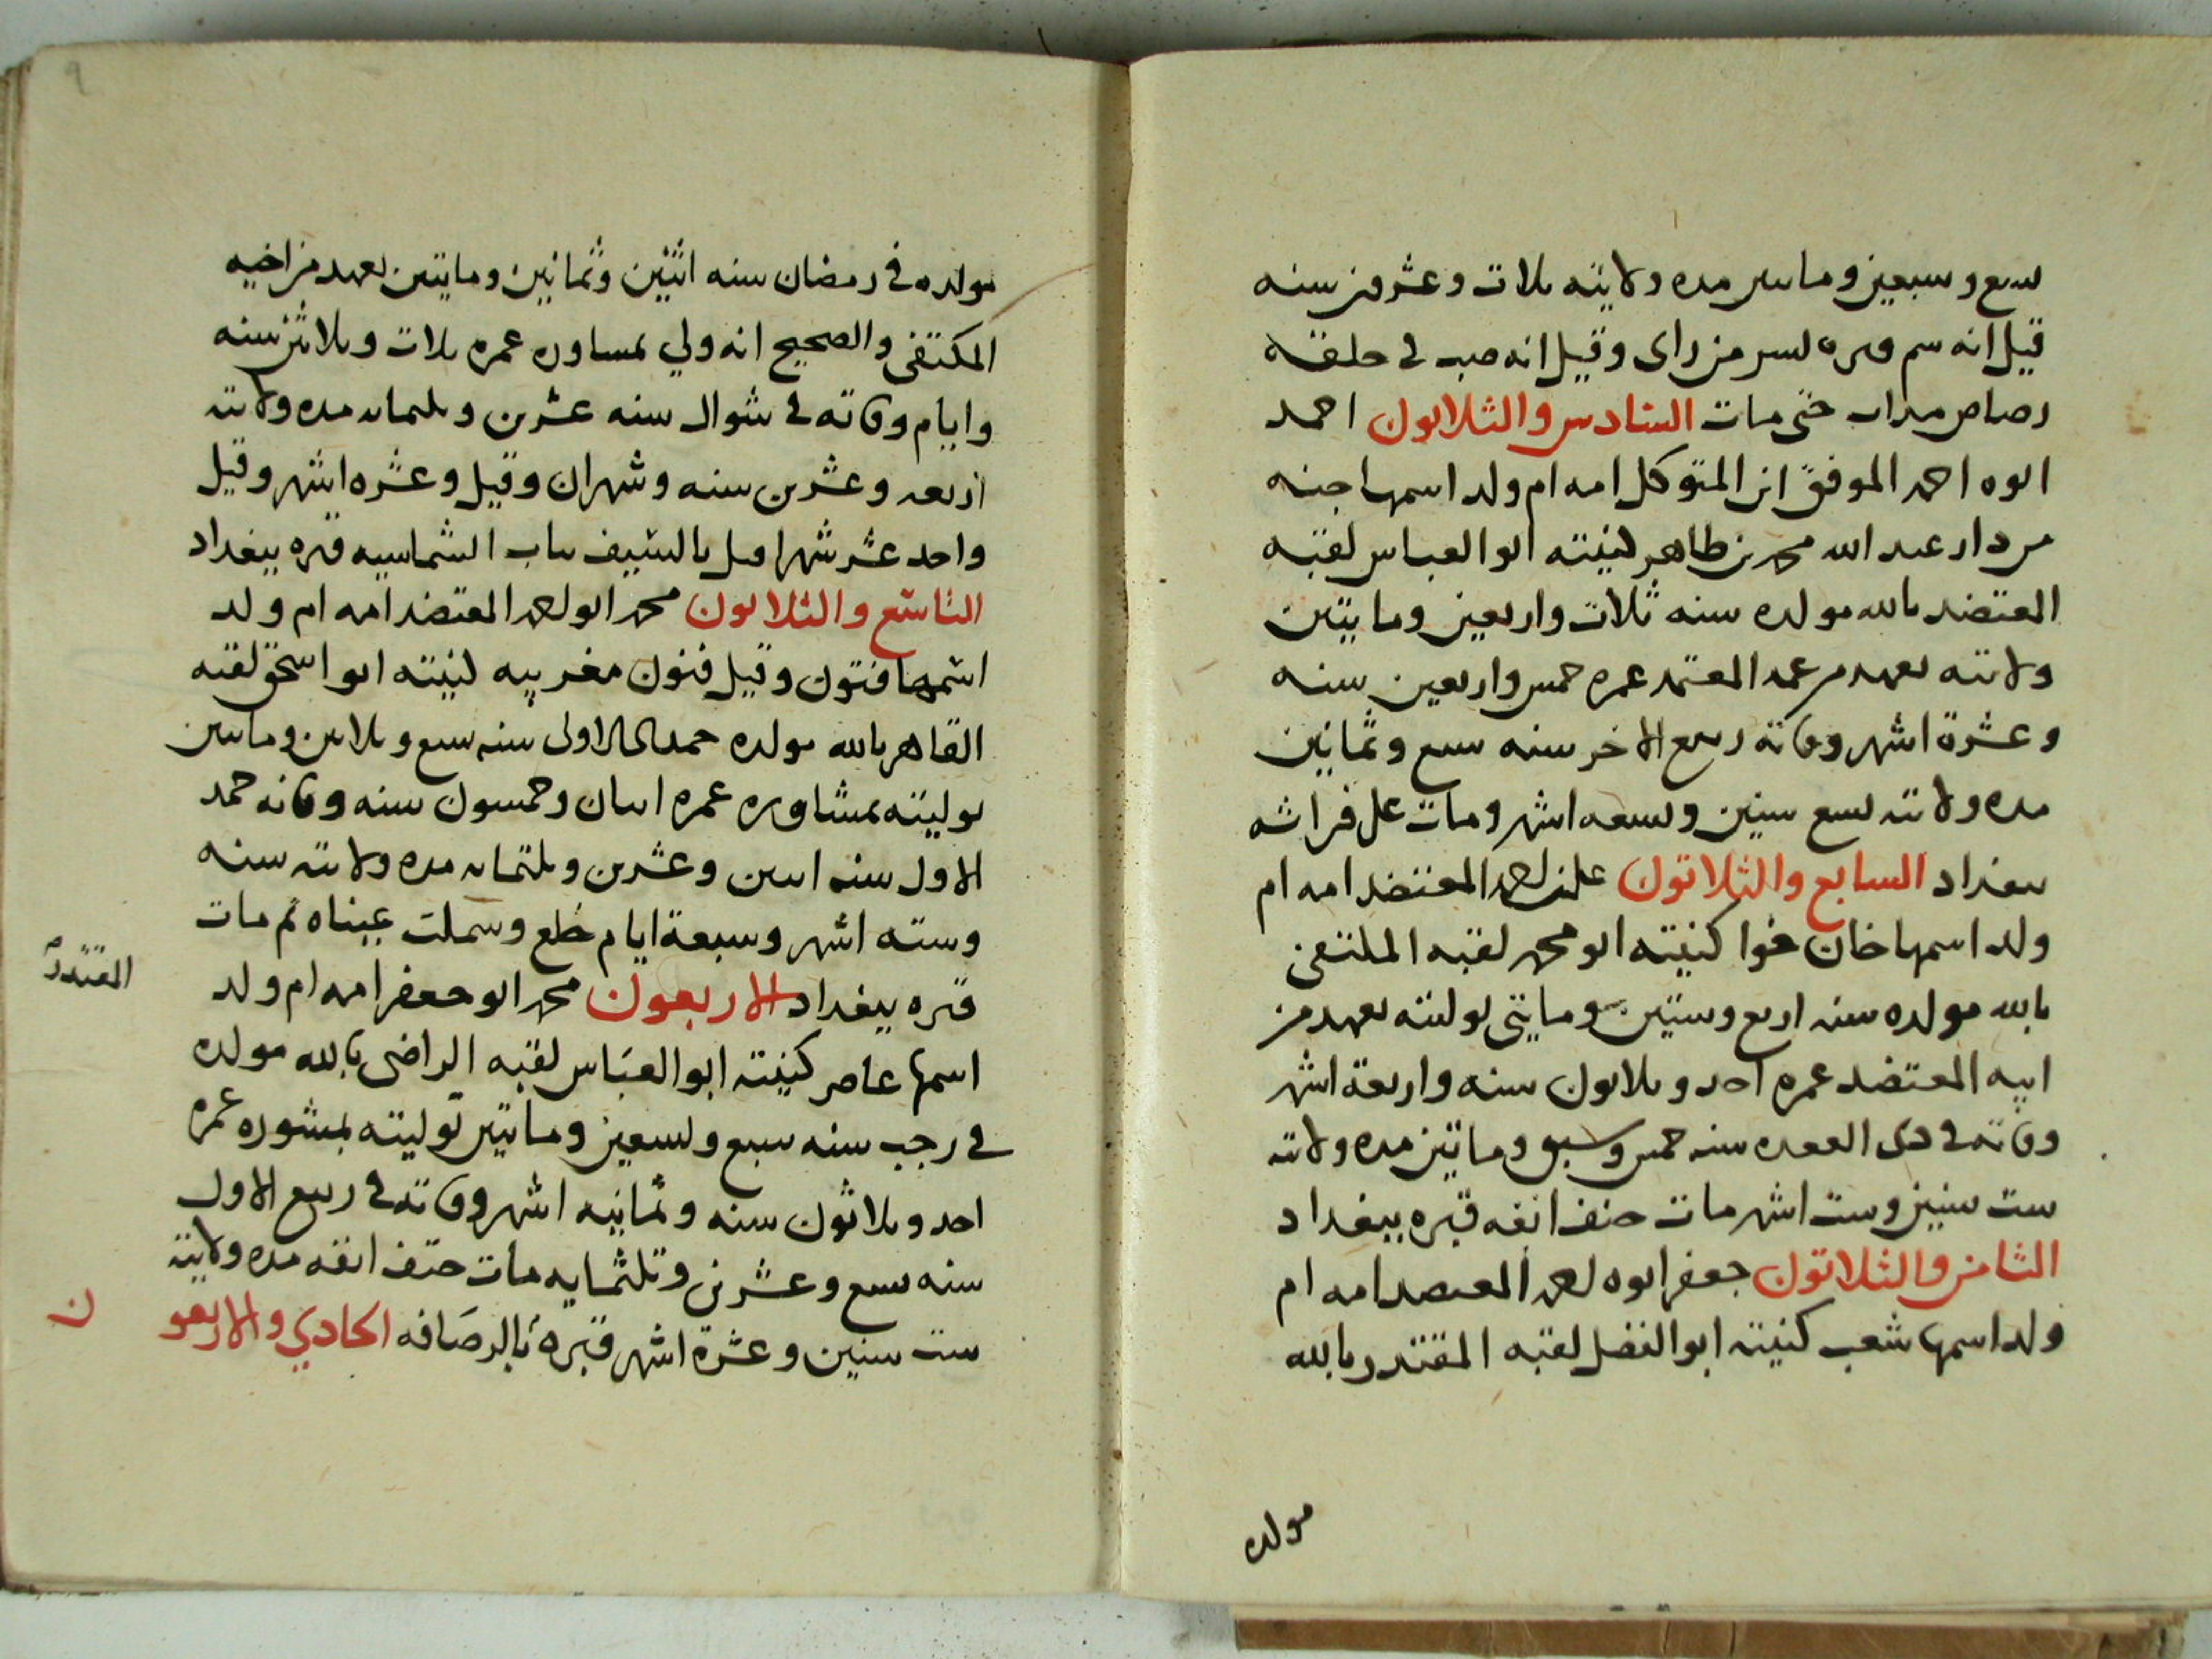 سبع وسبعين وماتين مده ولايته ثلاث وعشرين سنه
قيل انه سم وقبره بسر من راى وقيل انه صب في حلقه
رصاص مداب حتى مات السادس والثلاثون احمد
ابوه احمد الموفق ابن المتوكل امه ام ولد اسمها
من دار عبد الله محمد بن طاهر كنيته ابو العباس لقبه
المعتضد بالله مولده سنه ثلاث واربعين ومايتين
ولايته بعهد من عمه المعتمد عمره خمس واربعين سنه
وعشرة اشهر وفاته ربيع الاخر سنه سبع وثمانين
مده ولايته تسع سنين وتسعه اشهر ومات على فراشه
ببغداد السابع والثلاثون على بن احمد المعتضد امه ام
ولد اسمها خان كنيته ابو محمد لقبه المكتفى
بالله مولده سنه اربع وستين ومايتى توليته بعهد من
ابيه المعتضد عمره احد وثلاثون سنه واربعة اشهر
وفاته في ذى القعده سنه خمس وماتين مده ولايته
ست سنين وست اشهر مات حتف انفه قبره ببغداد
الثامن والثلاثون جعفر ابوه احمد المعتضد امه ام
ولد اسمها شعب كنيته ابو الفضل لقبه المقتدر بالله
مولده
مولده في رمضان سنه اثنين وثمانين ومايتين بعهد من اخيه
المكتفى والصحيح انه ولي بمساوره عمره ثلاث وثلاثين سنه
وايام وفاته في شوال سنه عشرين وثلثمايه مده ولايته
اربعه وعشرين سنه وشهران وقيل وعشره اشهر وقيل
واحد عشر شهرا قتل بالسيف بباب الشماسيه قبره ببغداد
التاسع والثلاثون محمد ابو احمد المعتضد امه ام ولد
اسمها فتون وقيل فنون مغربيه كنيته ابو اسحق لقبه
القاهر بالله مولده جمد الاولى سنه سبع وثلاثين وماتين
توليته بمشاوره عمره اثنان وخمسون سنه وفاته جمد
الاول سنه اثنين وعشرين وثلثمايه مده ولايته سنه
وسته اشهر وسبعة ايام خلع وسملت عيناه ثم مات
قبره ببغداد الاربعون محمد ابو جعفر امه ام ولد
المقتدر
اسمها عاصر كنيته ابو العباس لقبه الراضى بالله مولده
في رجب سنه سبع وتسعين وماتين توليته بمشوره عمره
احد وثلاثون سنه وثمانيه اشهر وفاته في ربيع الاول
سنه تسع وعشرين وثلثمايه مات حتف انفه مده ولايته
ست سنين وعشرة اشهر قبره بالرصافه الحادي والاربعو
ن